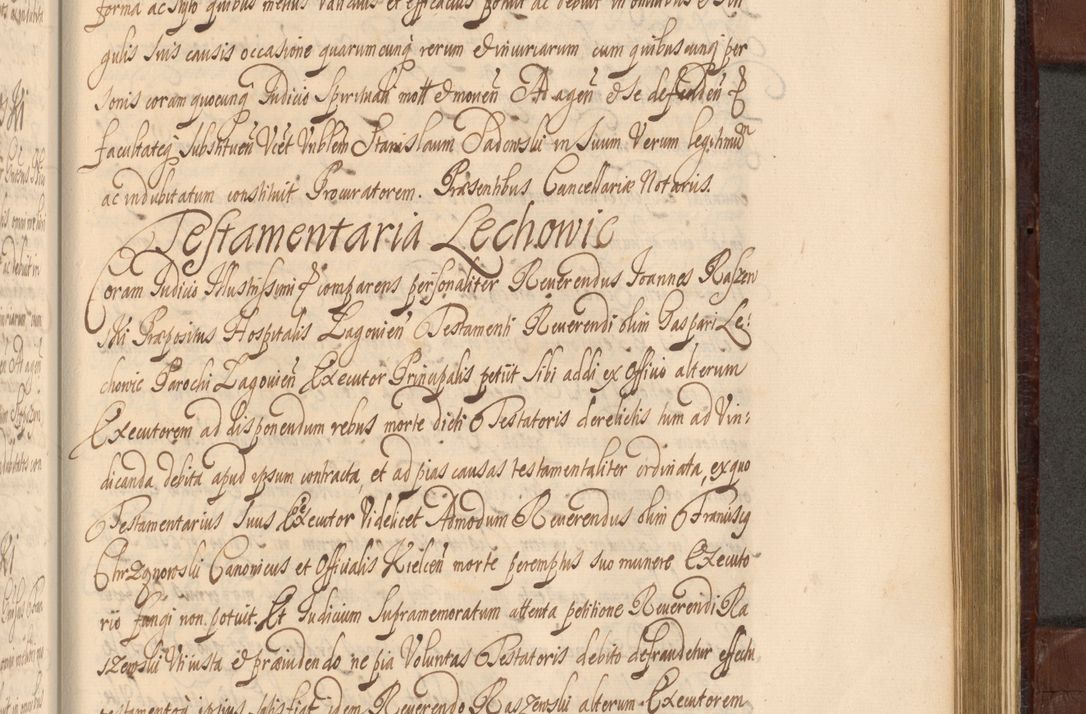 forma ac stylo quibus melius validius et efficacius potuit ac debuit in omnibus et sin
gulis suis causis occasione quarumcunq rerum et iniuriarum cum quibuscunq per
sonis coram quocunq Judicio Spirituali mott et moven Ad agen et se defenden
facultateq substituen Vcet Vnblem Stanislaum Sadowski in suum Verum legitimum
ac indubitatum constituit Procuratorem. Præsentibus Cancellariæ Notariis.
Testamentaria Lechowic
Coram Judicio Illustrissimi &c comparens personaliter Reuerendus Joannes Raszew
ski Præpositus Hospitalis Lagovien Testamenti Reuerendi olim Gaspari Le:
chowic Parochi Lagovien Executor Principalis petiit sibi addi ex Officio alterum
Executorem ad disponendum rebus morte dicti Testatoris derelictis tum ad Vin:
dicanda debita apud ipsum contracta, et ad pias causas testamentaliter ordinata, ex quo
Testamentarius Suus Executor Videlicet Admodum Reuerendus olim Franciscq
Chrzanowski Canonicus et Officialis Kielcen morte peremptus suo munere Executo
rio fungi non potuit. Et Judicium supramemoratum attenta petitione Reuerendi Ra
szewski Vti iusta et præuidendo ne pia Voluntas Testatoris debito defraudetur effectu
testamentoq ipsius satisfiat idem Reuerendo Raszewski alterum Executorem